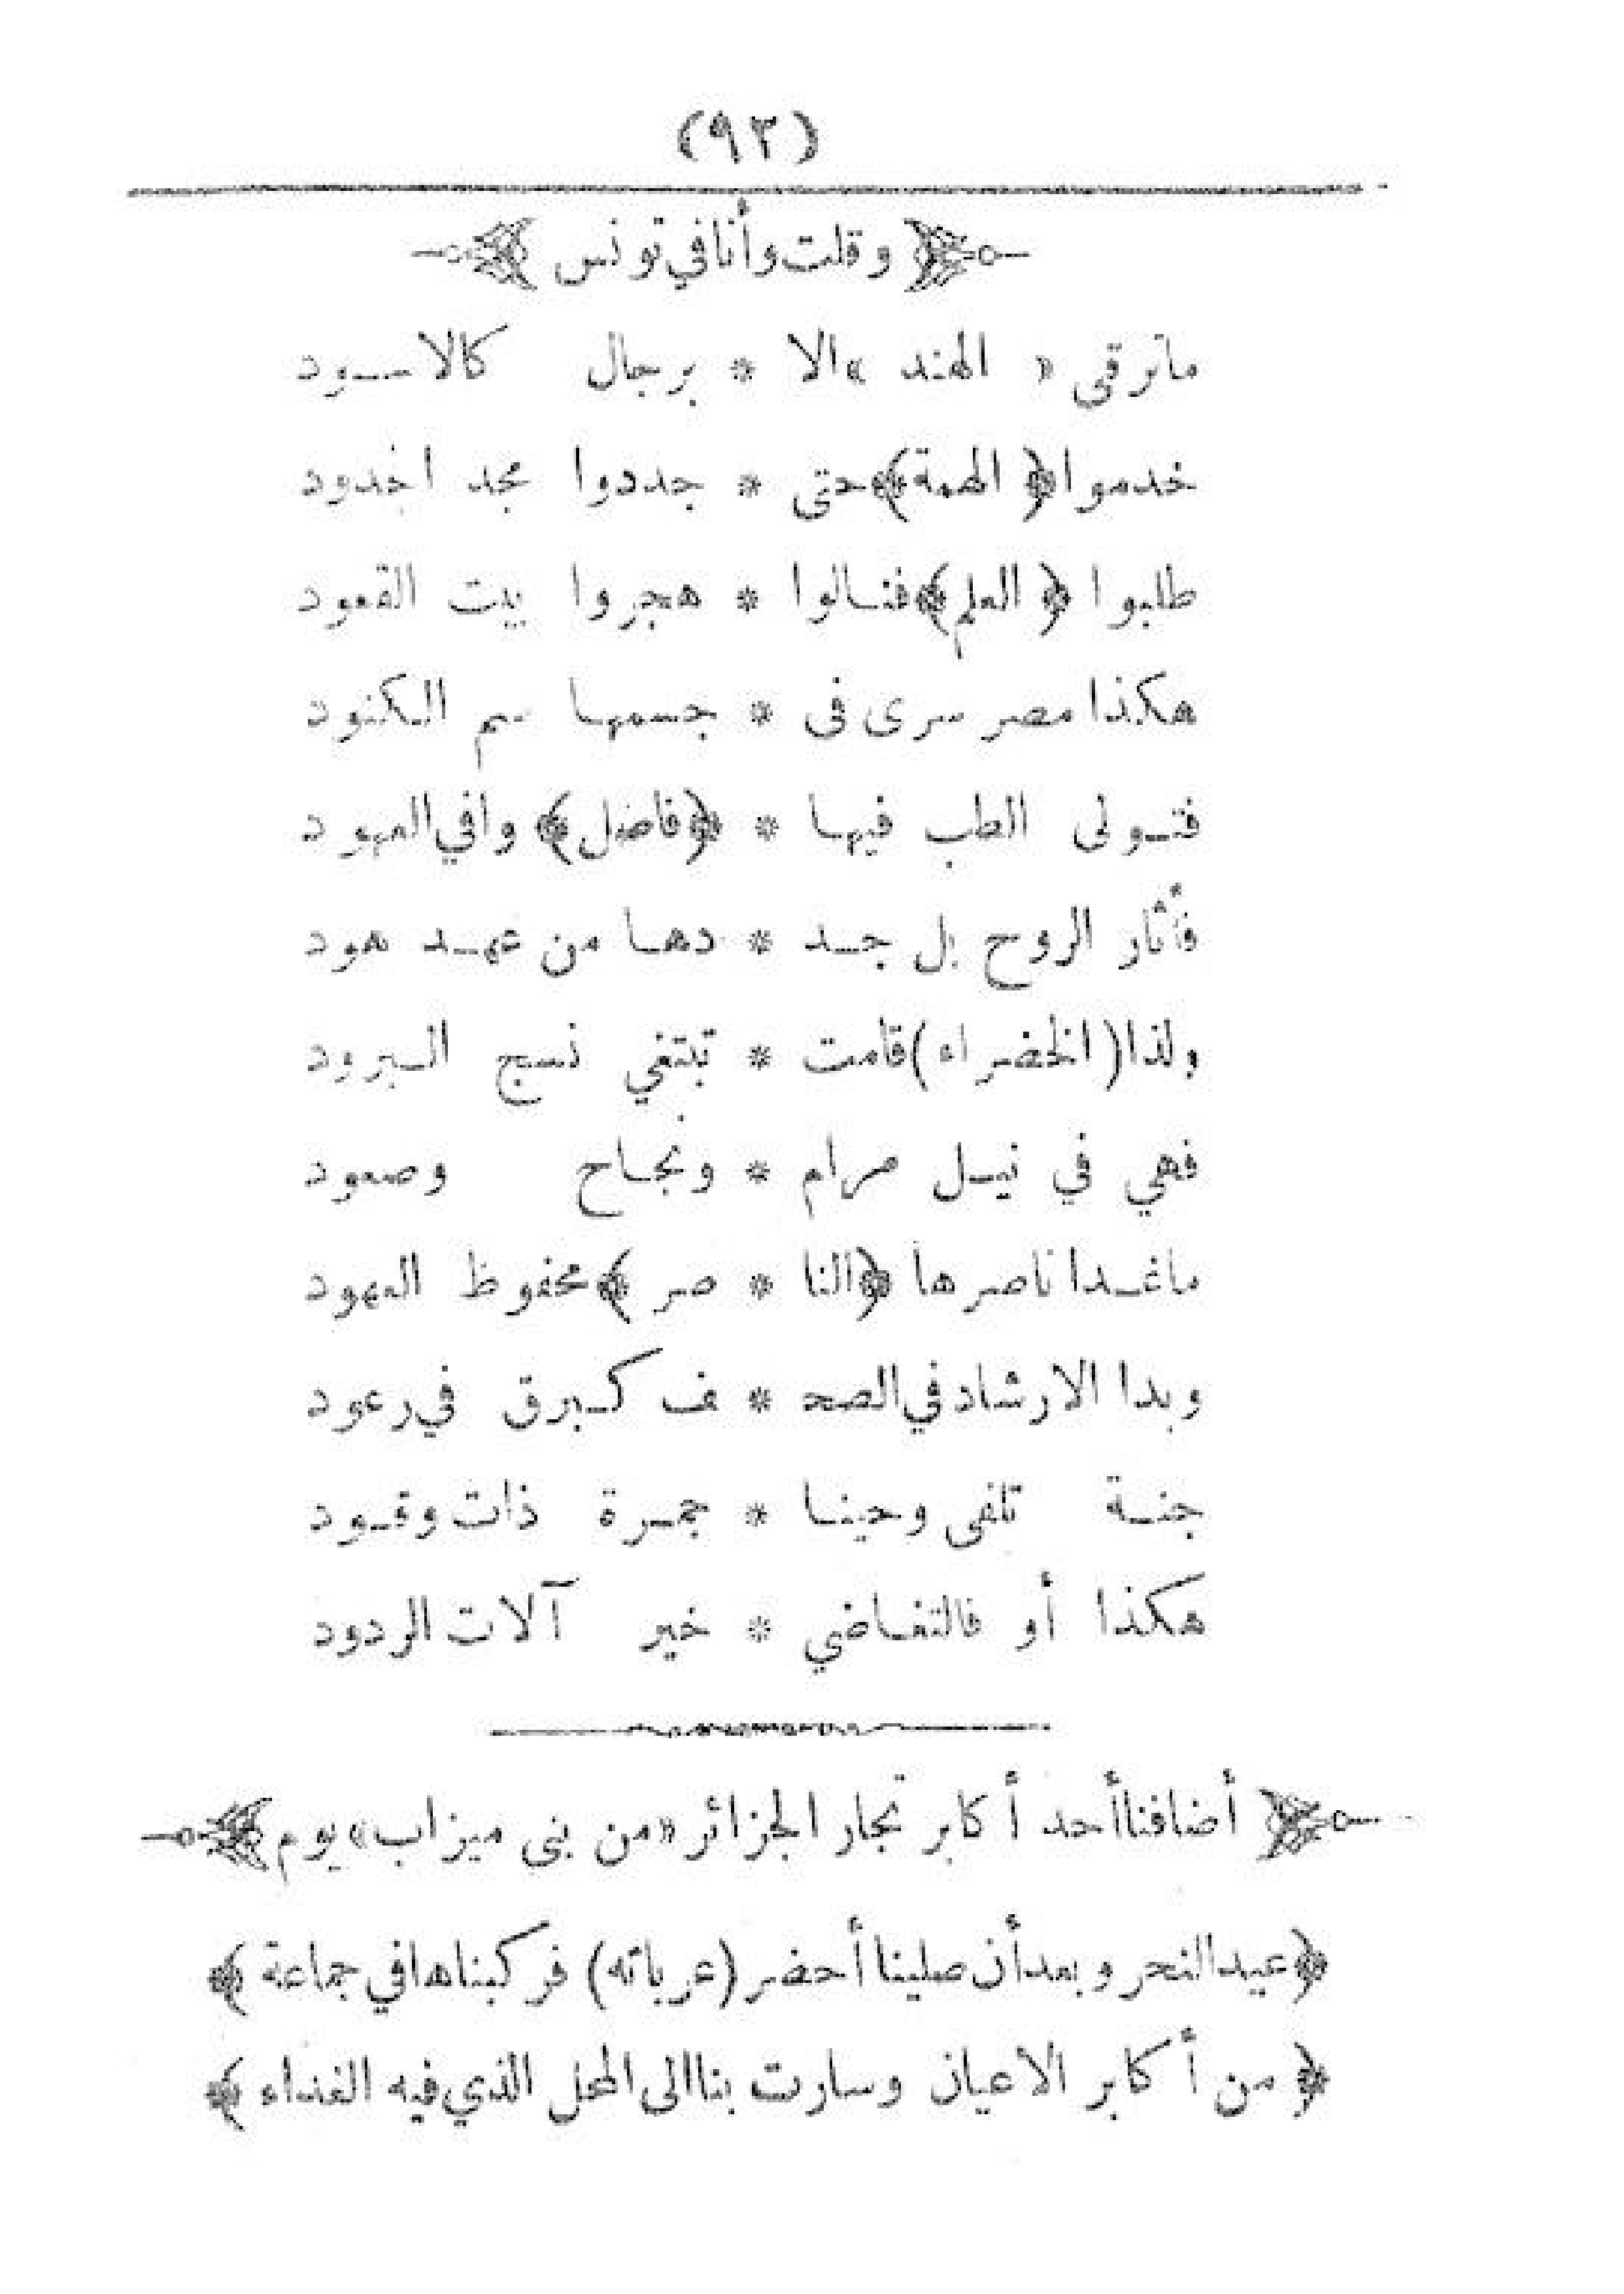 (٩٣)
﴿ وقلت وأنا في تونس ﴾
ماترقى « الهند » الا * برجال كالاسود
خدموا ﴿ الهمة ﴾ حتى * جددوا مجد الجدود
طلبوا ﴿ العلم ﴾ فنالوا * هجروا بيت القعود
هكذا مصر سرى فى * جسمها سم الكنود
فتولى الطب فيها * ﴿ فاضل ﴾ وافي العهود
فأثار الروح بل جد * دها من عهد هود
ولذا ( الخضراء ) قامت * تبتغي نسج البرود
فهي في نيل مرام * ونجاح وصعود
ماغدا ناصرها ﴿ النا * صر ﴾ محفوظ العهود
وبدا الارشاد في الصحـ * ـف كبرق في رعود
جنة تلفى وحينا * جمرة ذات وقود
هكذا أو فالتغاضي * خير آلات الردود
﴿ أضافنا أحد أكابر تجار الجزائر « من بنى ميزاب » يوم ﴾
﴿ عيد النحر وبعد أن صلينا أحضر ( عرباته ) فركبناها في جماعة ﴾
﴿ من أكابر الاعيان وسارت بنا الى المحل الذي فيه الغداء ﴾